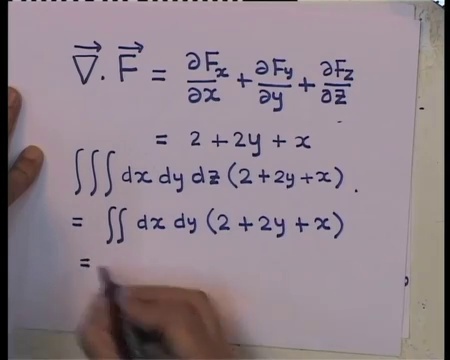 ∇⃗ . F⃗ = ∂Fx/∂x + ∂Fy/∂y + ∂Fz/∂z
= 2 + 2y + x
∫∫∫ dx dy dz (2 + 2y + x) .
= ∫∫ dx dy (2 + 2y + x)
=